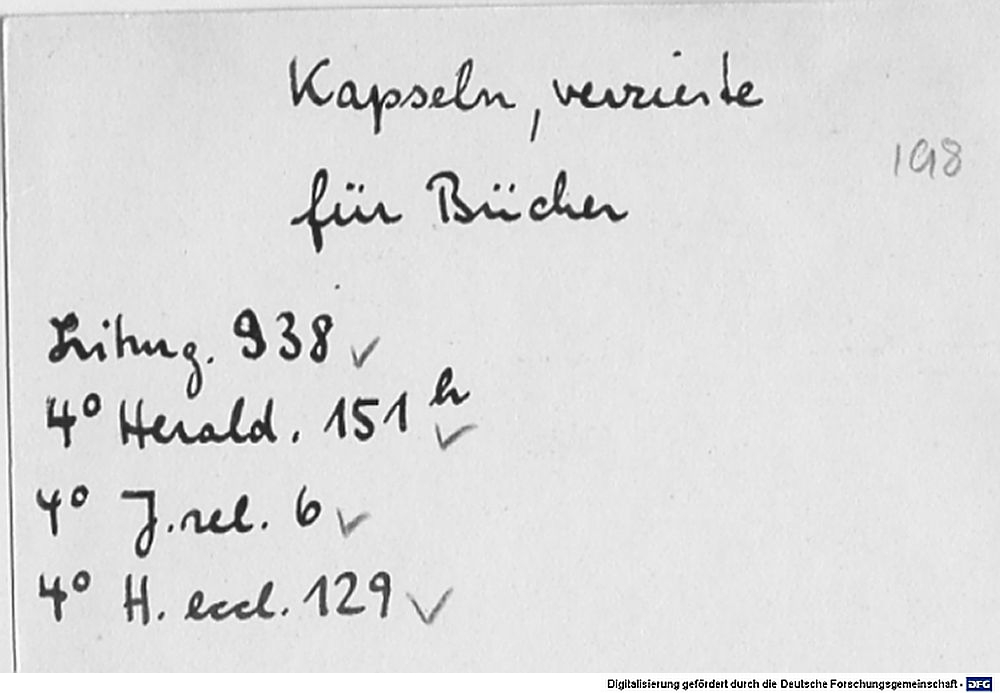 Kapseln, verzierte
198
für Bücher
Liturg. 938 ✓
4° Herald. 151 h ✓
4° J. rel. 6 ✓
4° H. eccl. 129 ✓
Digitalisierung gefördert durch die Deutsche Forschungsgemeinschaft - DFG